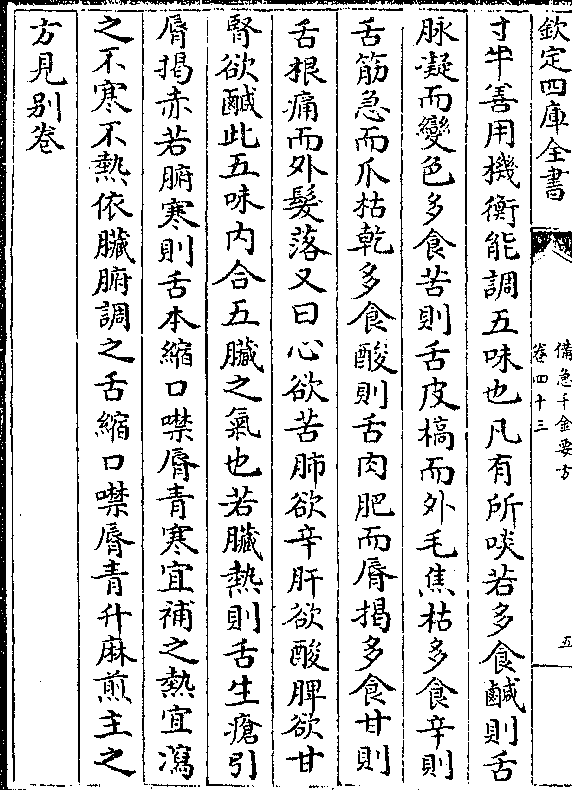 欽定四庫全書
備急千金要方
卷四十三
五
寸半善用機衡能調五味也凡有所啖若多食鹹則舌
脉凝而變色多食苦則舌皮槁而外毛焦枯多食辛則
舌筋急而爪枯乾多食酸則舌肉肥而脣揭多食甘則
舌根痛而外髮落又曰心欲苦肺欲辛肝欲酸脾欲甘
腎欲鹹此五味内合五臟之氣也若臟熱則舌生瘡引
脣揭赤若腑寒則舌本縮口噤脣青寒宜補之熱宜瀉
之不寒不熱依臟腑調之舌縮口噤脣青升麻煎主之
方見别卷